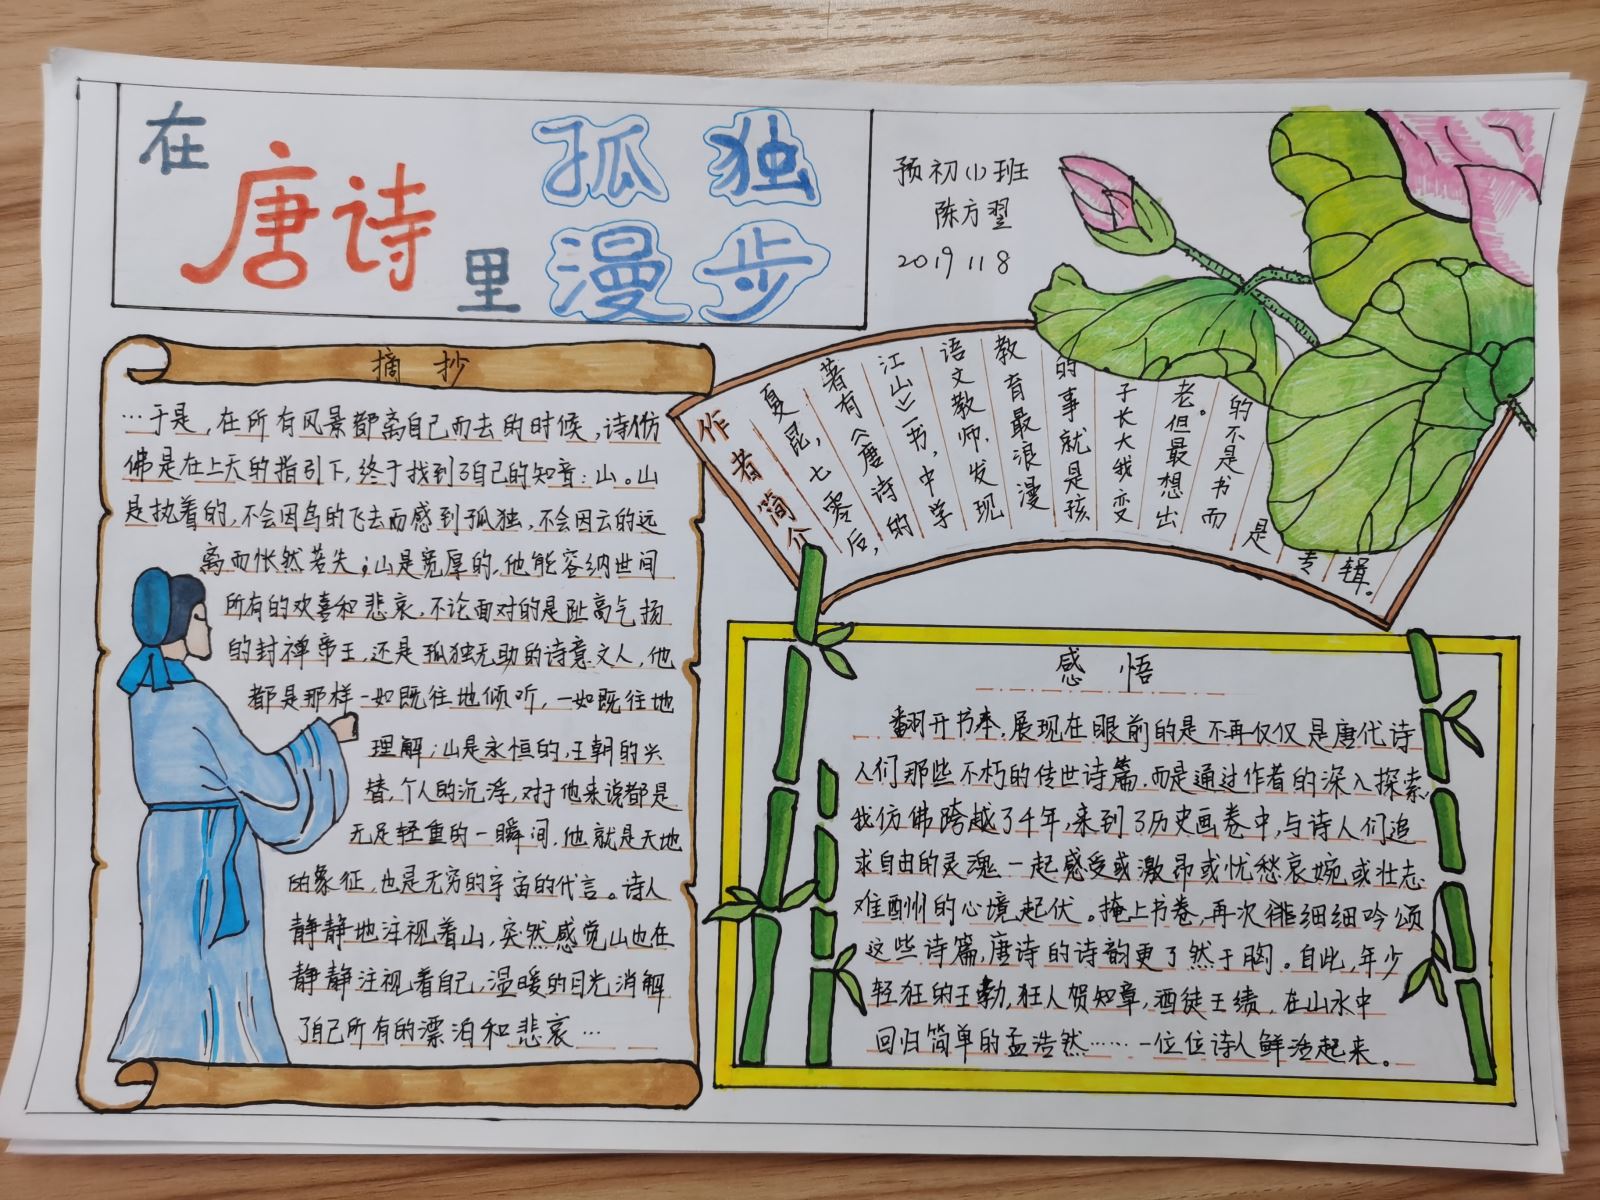 在
唐诗
里
孤独
漫步
预初(1)班
陈方翌
2019 11 8
摘抄
…于是,在所有风景都离自己而去的时候,诗仿
佛是在上天的指引下,终于找到了自己的知音:山。山
是执着的,不会因鸟的飞去而感到孤独,不会因云的远
离而怅然若失;山是宽厚的,他能容纳世间
所有的欢喜和悲哀,不论面对的是趾高气扬
的封禅帝王,还是孤独无助的诗意文人,他
都是那样一如既往地倾听,一如既往地
理解;山是永恒的,王朝的兴
替,个人的沉浮,对于他来说都是
无足轻重的一瞬间,他就是天地
的象征,也是无穷的宇宙的代言。诗人
静静地注视着山,突然感觉山也在
静静注视着自己,温暖的目光消解
了自己所有的漂泊和悲哀…
作者简介
夏昆,七零后,
著有《唐诗的
江山》一书,中学
语文教师,发现
教育最浪漫
的事就是孩
子长大我变
老。但最想出
的不是书而
是
专
辑。
感悟
翻开书本,展现在眼前的是不再仅仅是唐代诗
人们那些不朽的传世诗篇,而是通过作者的深入探索,
我仿佛跨越了千年,来到了历史画卷中,与诗人们追
求自由的灵魂一起感受或激昂或忧愁哀婉或壮志
难酬州的心境起伏。掩上书卷,再次徘细细吟颂
这些诗篇,唐诗的诗韵更了然于胸。自此,年少
轻狂的王勃,狂人贺知章,酒徒王绩,在山水中
回归简单的孟浩然……一位位诗人鲜活起来。